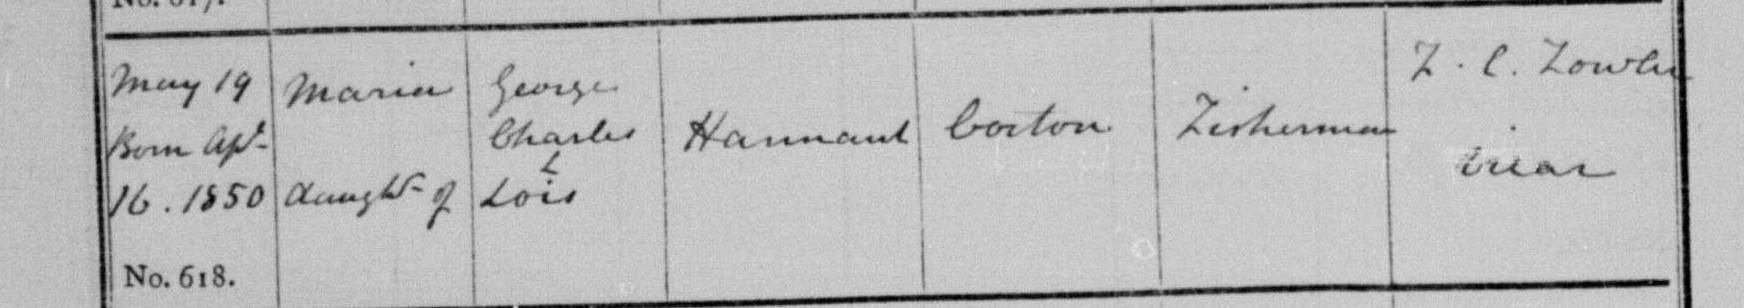 May 19
Born Apl
16. 1850
Maria
daughtr of
George
Charles
&
Lois
Hannant
Corton
Fisherman
F. C. Fowler
Vicar
No. 618.